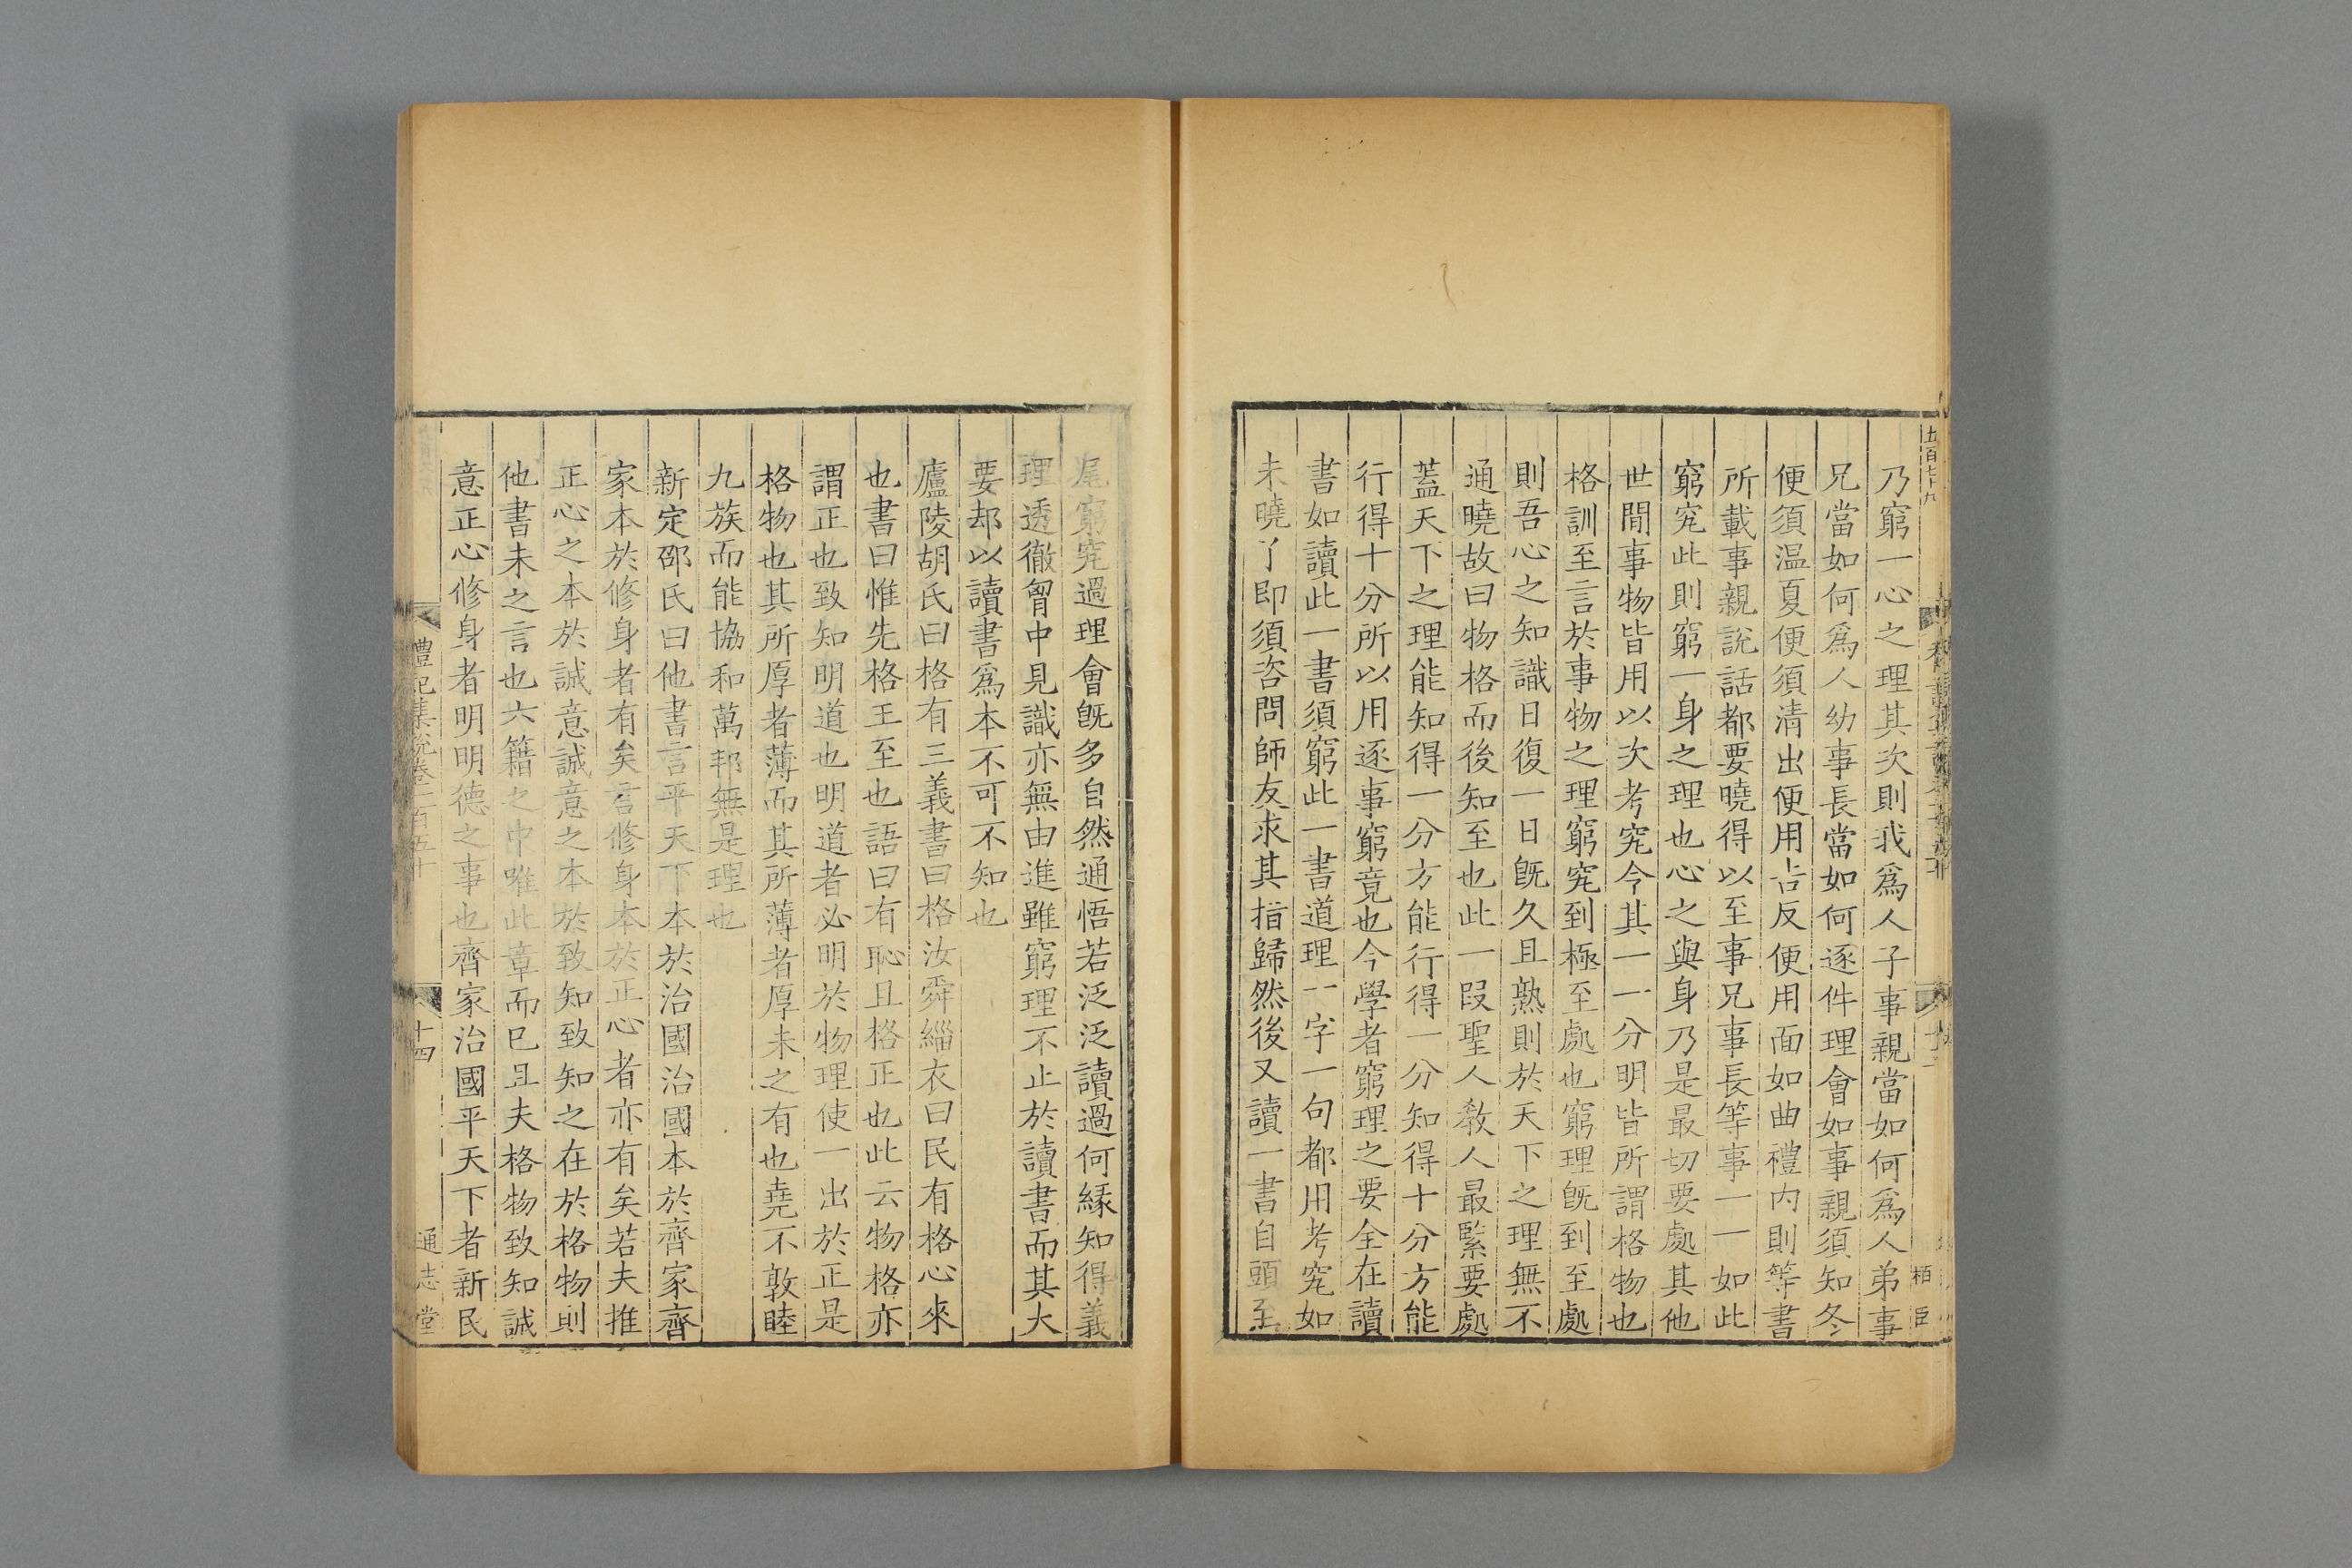 乃窮一心之理其次則我爲人子事親當如何爲人弟事
兄當如何爲人幼事長當如何逐件理會如事親須知冬
便須温夏便須凊出便用告反便用面如曲禮內則等書
所載事親說話都要曉得以至事兄事長等事一一如此
窮究此則窮一身之理也心之與身乃是最切要處其他
世間事物皆用以次考究令其一一分明皆所謂格物也
格訓至言於事物之理窮究到極至處也窮理旣到至處
則吾心之知識日復一日旣久且熟則於天下之理無不
通曉故曰物格而後知至也此一段聖人教人最緊要處
蓋天下之理能知得一分方能行得一分知得十分方能
行得十分所以用逐事窮竟也今學者窮理之要全在讀
書如讀此一書須窮此一書道理一字一句都用考究如
未曉了卽須咨問師友求其指歸然後又讀一書自頭至
尾窮究過理會旣多自然通悟若泛泛讀過何緣知得義
理透徹胷中見識亦無由進雖窮理不止於讀書而其大
要却以讀書爲本不可不知也
廬陵胡氏曰格有三義書曰格汝舜緇衣曰民有格心來
也書曰惟先格王至也語曰有恥且格正也此云物格亦
謂正也致知明道也明道者必明於物理使一出於正是
格物也其所厚者薄而其所薄者厚未之有也堯不敦睦
九族而能協和萬邦無是理也
新定邵氏曰他書言平天下本於治國治國本於齊家齊
家本於修身者有矣言修身本於正心者亦有矣若夫推
正心之本於誠意誠意之本於致知致知之在於格物則
他書未之言也六籍之中唯此章而已且夫格物致知誠
意正心修身者明明德之事也齊家治國平天下者新民
禮記集說卷一百五十
十四
通志堂